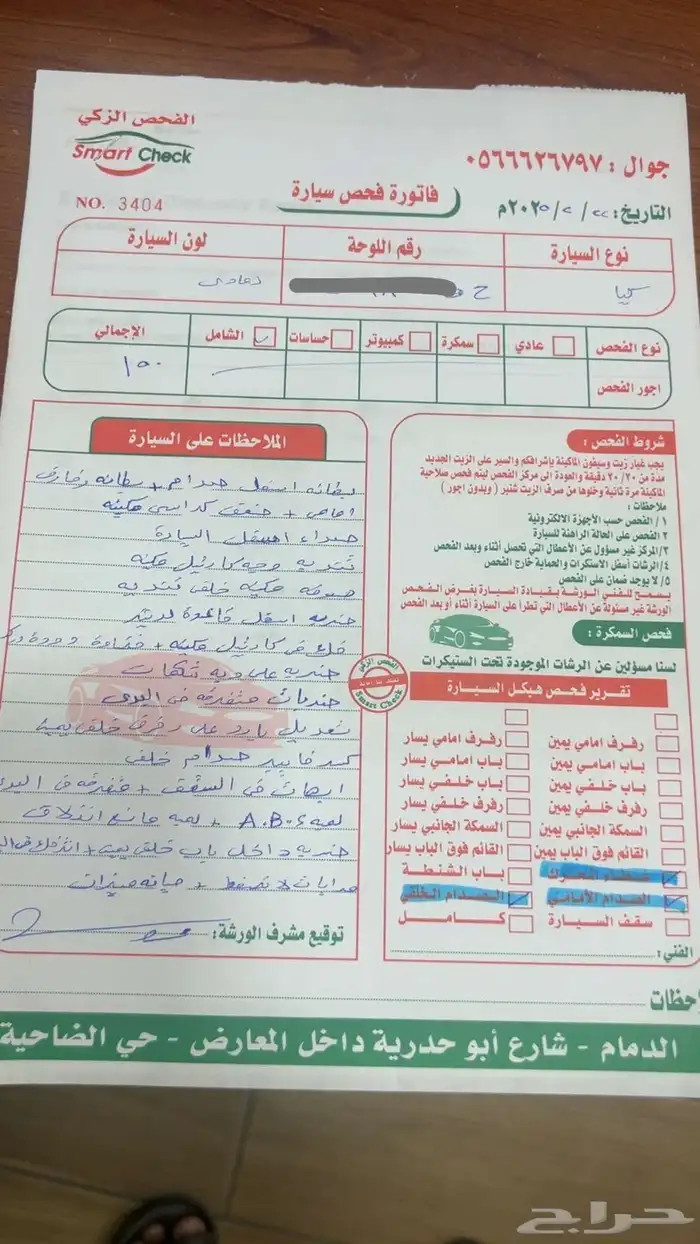 الفحص الزكي
Smart Check
جوال : ٠٥٦٦٦٢٦٧٩٧
فاتورة فحص سيارة
NO. 3404
التاريخ: ٢٢ / ٢ / ٢٠٢٥م
نوع السيارة رقم اللوحة لون السيارة
كيا ح رمادي
نوع الفحص عادي سمكرة كمبيوتر حساسات الشامل الإجمالي
اجور الفحص ١٥٠
شروط الفحص :
يجب غيار زيت وسيفون الماكينة بإشرافكم والسير على الزيت الجديد
مدة من ٢٠/٢٠ دقيقة والعودة إلى مركز الفحص ليتم فحص صلاحية
الماكينة مرة ثانية وخلوها من صرف الزيت شنبر ( وبدون اجور )
ملاحظات :
١/ الفحص حسب الأجهزة الالكترونية
٢/ الفحص على الحالة الراهنة للسيارة
٣/ المركز غير مسؤول عن الأعطال التي تحصل أثناء وبعد الفحص
٤/ الرشات أسفل الاستكرات والحماية خارج الفحص
٥/ لا يوجد ضمان على الفحص
يسمح للفني الورشة بقيادة السيارة بغرض الفحص
الورشة غير مسئولة عن الأعطال التي تطرأ على السيارة أثناء أو بعد الفحص
فحص السمكرة :
لسنا مسؤلين عن الرشات الموجودة تحت الستيكرات
تقرير فحص هيكل السيارة
رفرف امامي يمين رفرف امامي يسار
باب امامي يمين باب امامي يسار
باب خلفي يمين باب خلفي يسار
رفرف خلفي يمين رفرف خلفي يسار
السمكة الجانبي يمين السمكة الجانبي يسار
القائم فوق الباب يمين القائم فوق الباب يسار
غطاء المحرك باب الشنطة
الصدام الأمامي الصدام الخلفي
سقف السيارة كامل
الفني :
الملاحظات على السيارة
بطانه اسفل صدام + بطانه رفارف
امامي + ضعف كراسي مكينه
صداء اسفل السيارة
تنديه وجه كارتيل مكينه
صوفه مكينه خلف تنديه
ضربه اسفل قاعدة لديتر
فك في كارتيل مكينه +
ضربه على
ضربات متفرقه في البودي
تعديل بارد على رفرف خلف يمين
كسر قابير صدام خلف
في السقف + متفرقه في البودي
لمبه A.B.S + لمبه مانع انزلاق
ضربه داخل باب خلف يمين +
+ صيانه ميزات
توقيع مشرف الورشة:
الفحص الزكي
Smart Check
الدمام - شارع أبو حدرية داخل المعارض - حي الضاحية
حراج